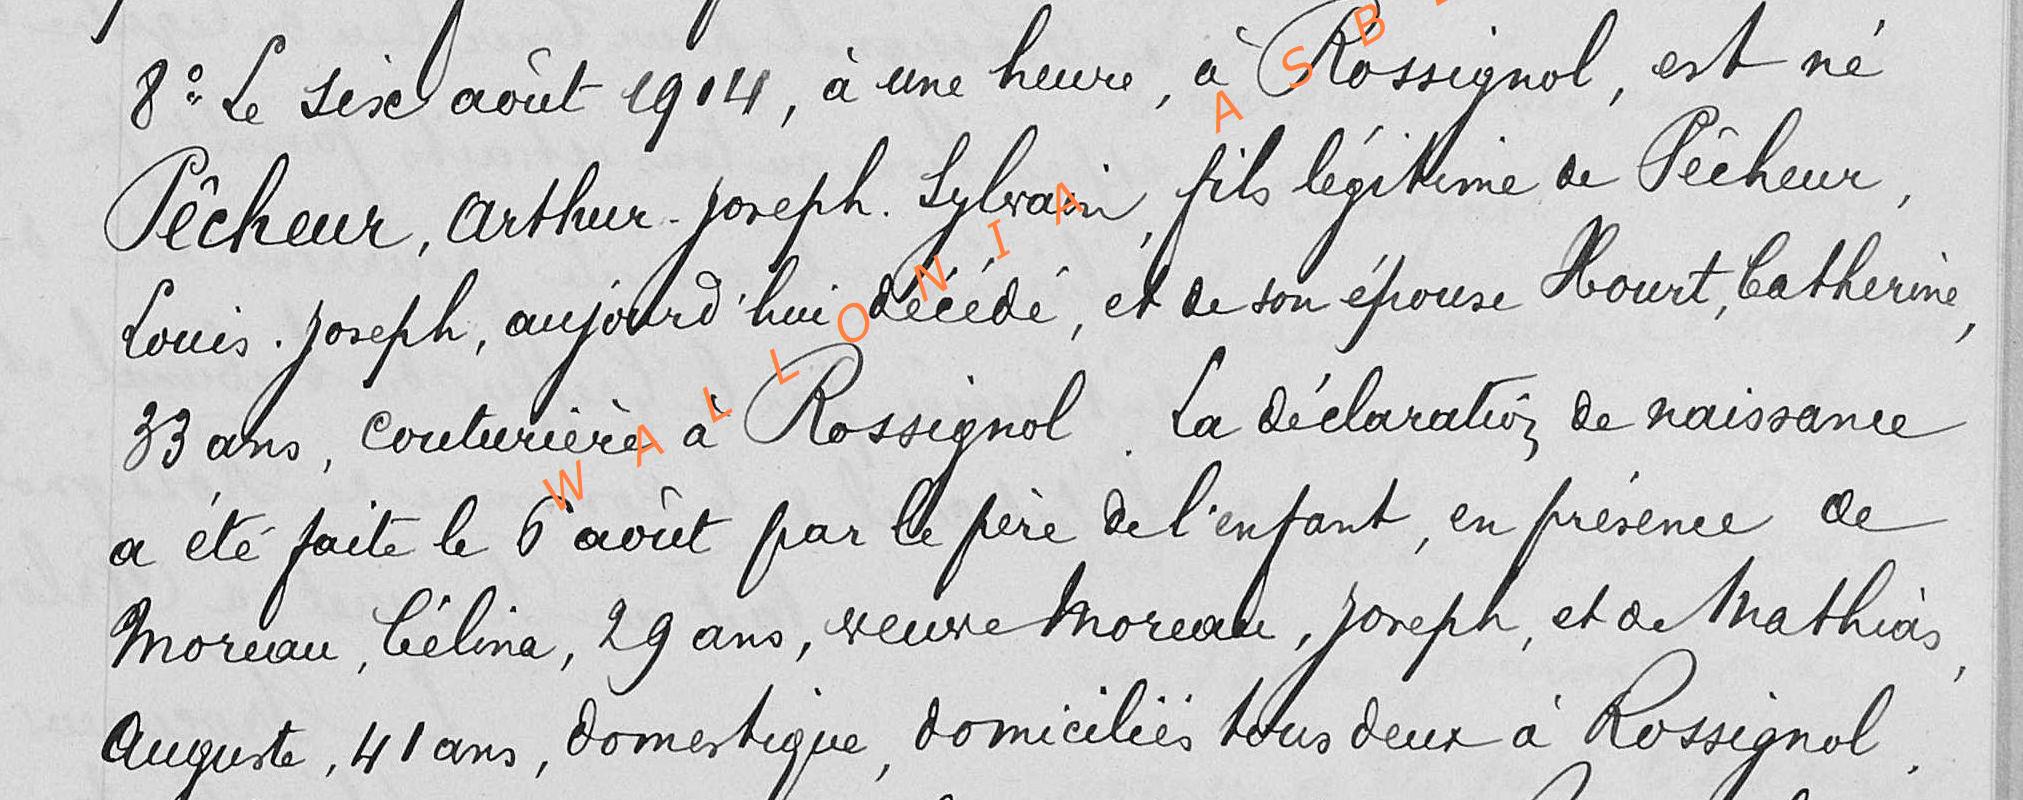 8° Le six août 1914, à une heure, à Rossignol, est né
Pêcheur, Arthur-Joseph. Sylvain, fils légitime de Pêcheur,
Louis. Joseph, aujourd'hui décédé, et de son épouse Hourt, Catherine,
33 ans, couturière à Rossignol. La déclaration de naissance
a été faite le 6 août par le père de l'enfant, en présence de
Moreau, Célina, 29 ans, veuve Moreau, Joseph, et de Mathias,
Auguste, 41 ans, domestique, domiciliés tous deux à Rossignol.
WALLONIA ASB